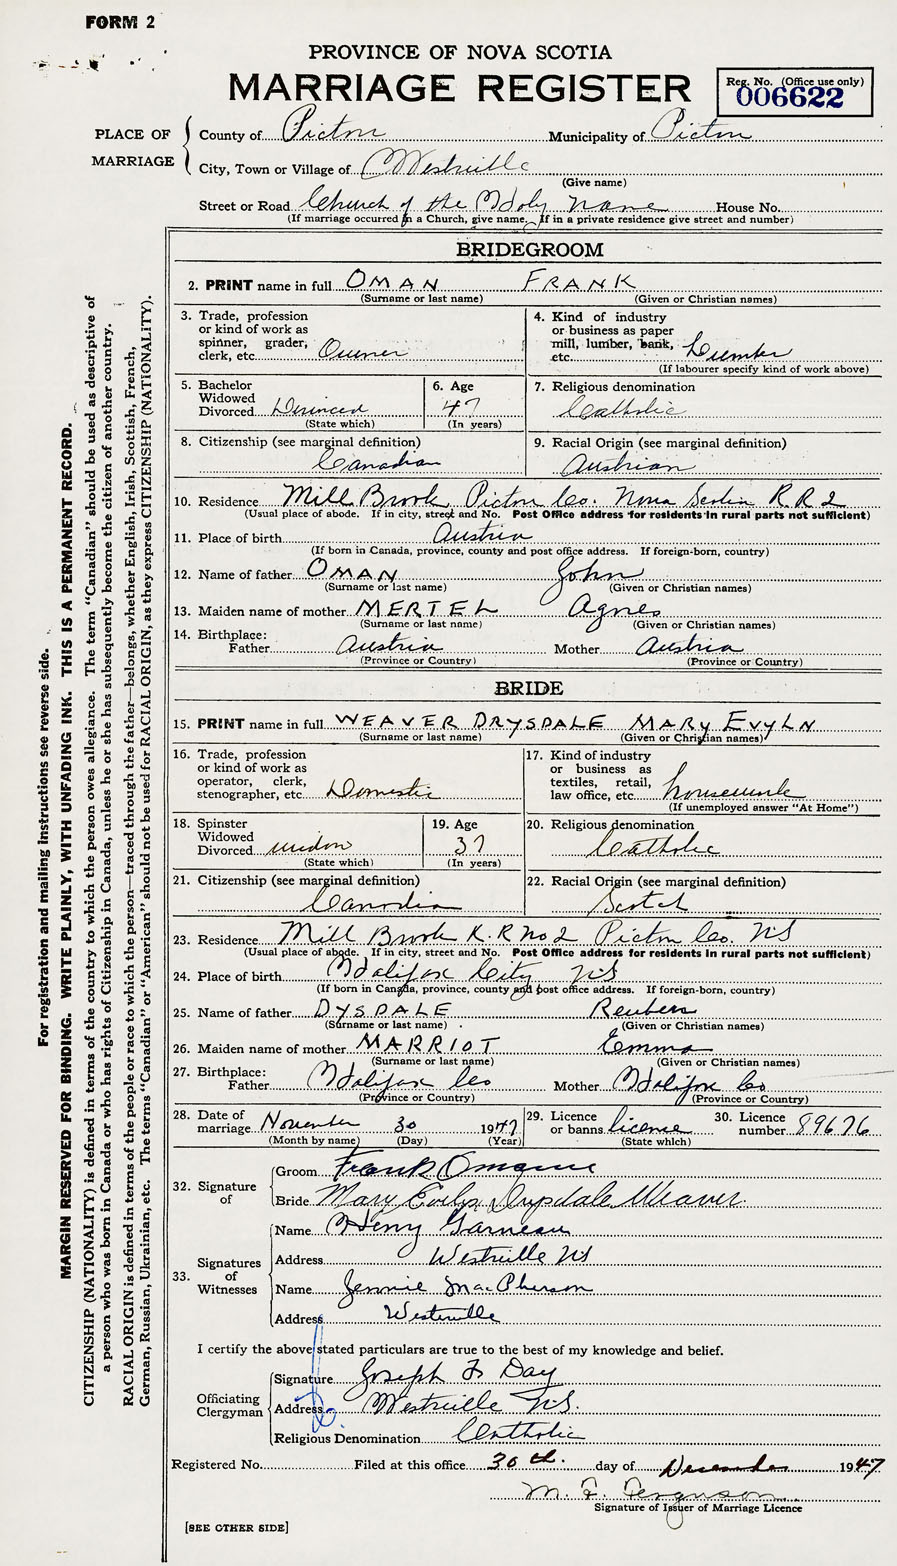 FORM 2
PROVINCE OF NOVA SCOTIA
MARRIAGE REGISTER
Reg. No. (Office use only)
006622
PLACE OF MARRIAGE
County of Pictou Municipality of Pictou
City, Town or Village of Westville
(Give name)
Street or Road Church of the Holy Name House No.
(If marriage occurred in a Church, give name. If in a private residence give street and number)
BRIDEGROOM
2. PRINT name in full OMAN FRANK
(Surname or last name) (Given or Christian names)
3. Trade, profession or kind of work as spinner, grader, clerk, etc. Owner
4. Kind of industry or business as paper mill, lumber, bank, etc. Lumber
(If labourer specify kind of work above)
5. Bachelor Widowed Divorced Divorced
(State which)
6. Age 47
(In years)
7. Religious denomination
Catholic
8. Citizenship (see marginal definition)
Canadian
9. Racial Origin (see marginal definition)
Austrian
10. Residence Mill Brook, Pictou Co. Nova Scotia R.R 2
(Usual place of abode. If in city, street and No. Post Office address for residents in rural parts not sufficient)
11. Place of birth Austria
(If born in Canada, province, county and post office address. If foreign-born, country)
12. Name of father OMAN John
(Surname or last name) (Given or Christian names)
13. Maiden name of mother MERTEL Agnes
(Surname or last name) (Given or Christian names)
14. Birthplace:
Father Austria Mother Austria
(Province or Country) (Province or Country)
BRIDE
15. PRINT name in full WEAVER DRYSDALE MARY EVYLN
(Surname or last name) (Given or Christian names)
16. Trade, profession or kind of work as operator, clerk, stenographer, etc. Domestic
17. Kind of industry or business as textiles, retail, law office, etc. housework
(If unemployed answer "At Home")
18. Spinster Widowed Divorced widow
(State which)
19. Age 37
(In years)
20. Religious denomination
Catholic
21. Citizenship (see marginal definition)
Canadian
22. Racial Origin (see marginal definition)
Scotch
23. Residence Mill Brook R.R No 2 Pictou Co. NS
(Usual place of abode. If in city, street and No. Post Office address for residents in rural parts not sufficient)
24. Place of birth Halifax City NS
(If born in Canada, province, county and post office address. If foreign-born, country)
25. Name of father DYSDALE Reubens
(Surname or last name) (Given or Christian names)
26. Maiden name of mother MARRIOT Emma
(Surname or last name) (Given or Christian names)
27. Birthplace:
Father Halifax Co Mother Halifax Co
(Province or Country) (Province or Country)
28. Date of marriage November 30 1947
(Month by name) (Day) (Year)
29. Licence or banns license
(State which)
30. Licence number 89676
32. Signature of
Groom Frank Omann
Bride Mary Evelyn Drysdale Weaver
33. Signatures of Witnesses
Name Henry Garneau
Address Westville NS
Name Jennie MacPherson
Address Westville
I certify the above stated particulars are true to the best of my knowledge and belief.
Officiating Clergyman
Signature Joseph F Day
Address Westville N.S.
Religious Denomination Catholic
Registered No. Filed at this office 30 th. day of December 1947
M. F. Ferguson
Signature of Issuer of Marriage Licence
[SEE OTHER SIDE]
For registration and mailing instructions see reverse side.
MARGIN RESERVED FOR BINDING. WRITE PLAINLY, WITH UNFADING INK. THIS IS A PERMANENT RECORD.
CITIZENSHIP (NATIONALITY) is defined in terms of the country to which the person owes allegiance. The term "Canadian" should be used as descriptive of
a person who was born in Canada or who has rights of Citizenship in Canada, unless he or she has subsequently become the citizen of another country.
RACIAL ORIGIN is defined in terms of the people or race to which the person—traced through the father—belongs, whether English, Irish, Scottish, French,
German, Russian, Ukrainian, etc. The terms "Canadian" or "American" should not be used for RACIAL ORIGIN, as they express CITIZENSHIP (NATIONALITY).